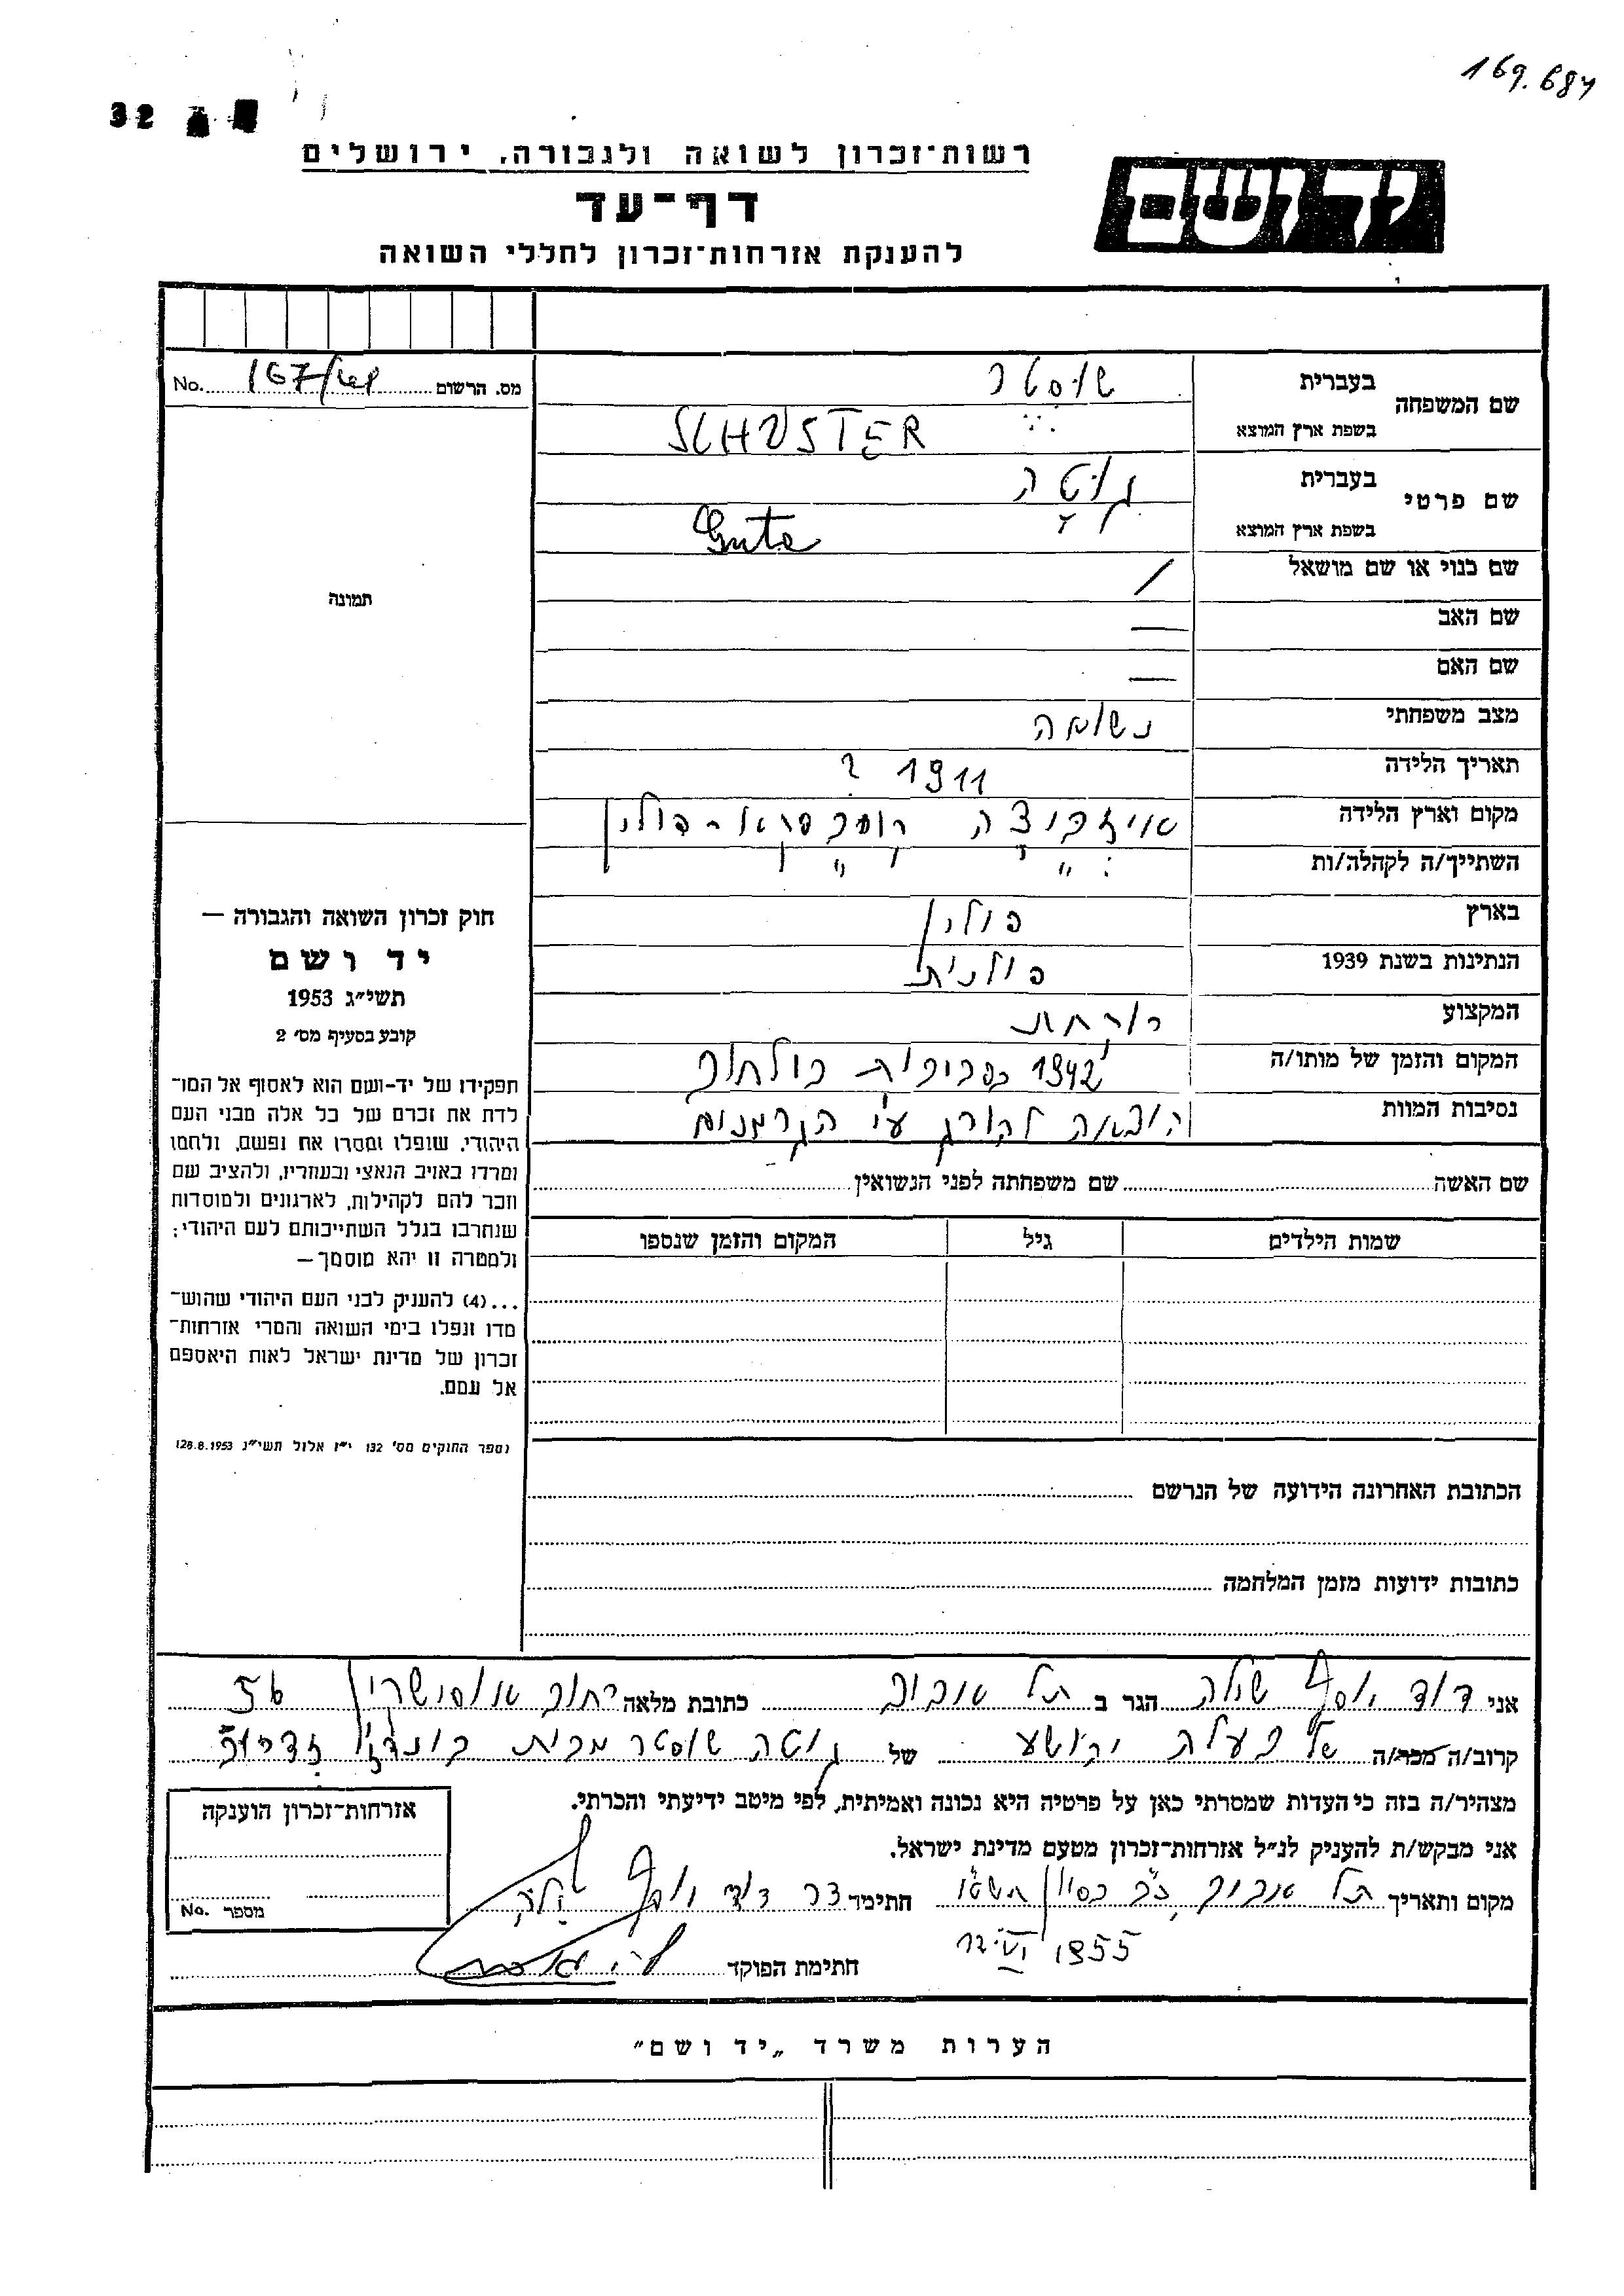 169.684
32
רשות־זכרון לשואה ולגבורה, ירושלים
יד ושם
דף־עד
להענקת אזרחות־זכרון לחללי השואה
מס. הרשום No. 167/
שם המשפחה בעברית שוסטר
בשפת ארץ המוצא SCHUSTER
שם פרטי בעברית גוטה
בשפת ארץ המוצא Guta
שם כנוי או שם מושאל /
שם האב —
שם האם —
מצב משפחתי נשואה
תאריך הלידה 1911 ?
מקום וארץ הלידה פולין
השתייך/ה לקהלה/ות " "
בארץ פולין
הנתינות בשנת 1939 פולנית
המקצוע רוקחת
המקום והזמן של מותו/ה 1942 בסביבות
נסיבות המוות הוצאה להורג ע"י הגרמנים
שם האשה שם משפחתה לפני הנשואין
שמות הילדים גיל המקום והזמן שנספו
הכתובת האחרונה הידועה של הנרשם
כתובות ידועות מזמן המלחמה
תמונה
חוק זכרון השואה והגבורה —
יד ושם
תשי״ג 1953
קובע בסעיף מס׳ 2
תפקידו של יד-ושם הוא לאסוף אל המו־
לדת את זכרם של כל אלה מבני העם
היהודי, שנפלו ומסרו את נפשם, ולחמו
ומרדו באויב הנאצי ובעוזריו, ולהציב שם
וזכר להם לקהילות, לארגונים ולמוסדות
שנחרבו בגלל השתייכותם לעם היהודי;
ולמטרה זו יהא מוסמך —
...(4) להענוק לבני העם היהודי שהוש־
מדו ונפלו בימי השואה והמרי אזרחות־
זכרון של מדינת ישראל לאות היאספם
אל עמם.
(ספר החוקים מס׳ 132 י״ז אלול תשי״ג 28.8.1953)
אני דוד יוסף שולה הגר ב תל אביב כתובת מלאה רחוב אוסישקין 56
קרוב/ה מכר/ה של בעלה יהושע של גוטה שוסטר מבית
מצהיר/ה בזה כי העדות שמסרתי כאן על פרטיה היא נכונה ואמיתית, לפי מיטב ידיעתי והכרתי.
אני מבקש/ת להעניק לנ״ל אזרחות־זכרון מטעם מדינת ישראל.
מקום ותאריך תל אביב כסיון תשט"ו חתימה דר דוד יוסף שולה
12.VI 1955
חתימת הפוקד
אזרחות־זכרון הוענקה
מספר No.
הערות משרד „יד ושם״